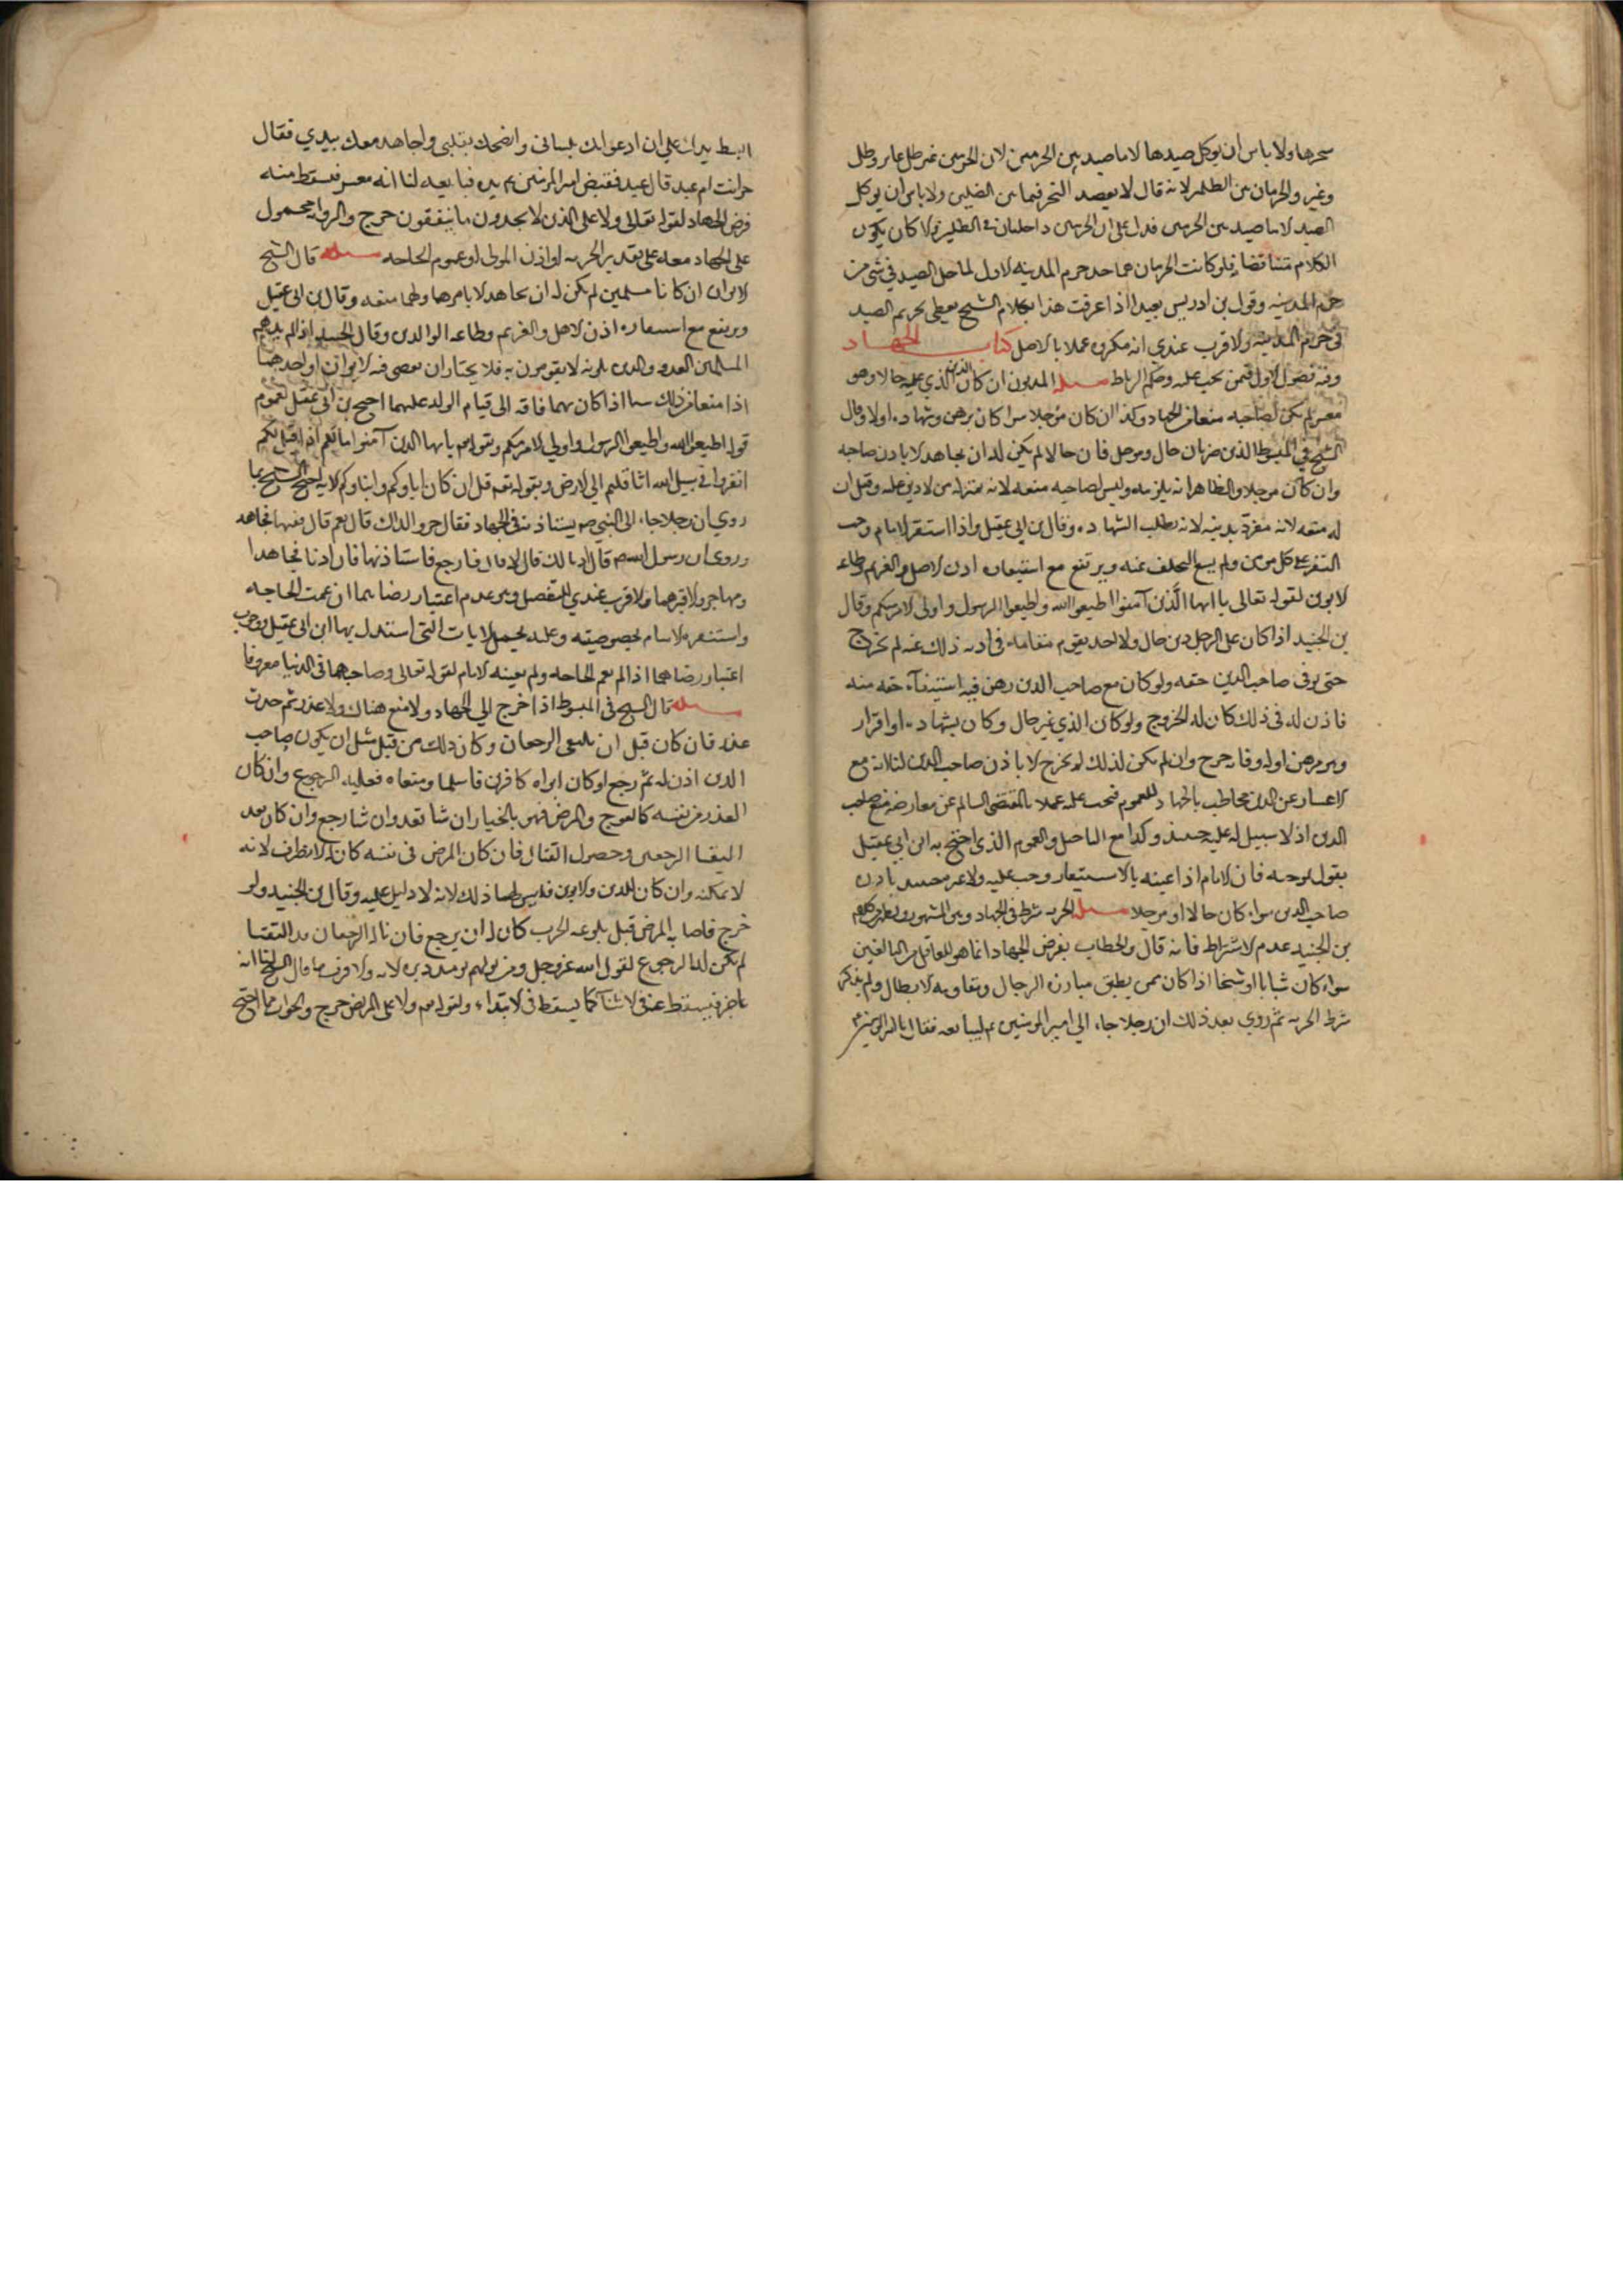 شجرها ولا باس ان يوكل صيدها الا ما صيد بين الحرمين لان الحرمين غير ظل عاير وظل
وعير والحرمان من الظلين لانه قال لا يعضد الشجر فيما بين الظلين ولا باس ان يوكل
الصيد الا ما صيد بين الحرمين فدل على ان الحرمين داخلان في الظلين والا كان يكون
الكلام متناقضا فلو كانت الحرمان هما حد حرم المدينه الاول لما حل الصيد في شي من
حرم المدينه وقول بن ادريس بعيد اذا عرفت هذا فكلام الشيخ يعطي تحريم الصيد
في حرم المدينه والاقرب عندي انه مكروه عملا بالاصل كتاب الجهاد
وفيه فصول الاول فيمن يجب عليه وحكم الرباط مسله المديون ان كان الدين الذي عليه حالا وهو
معسر لم يكن لصاحبه منعه من الجهاد وكذا ان كان موجلا سوا كان برهن وشهاده اولا وقال
الشيخ في المبسوط الدين ضربان حال وموجل فان حالا لم يكن له ان يجاهد الا باذن صاحبه
وان كان موجلا والظاهر انه يلزمه وليس لصاحبه منعه لانه بمنزله من لا دين عليه وقيل ان
له منعه لانه مغرر بدينه لانه يطلب الشهاده وقال بن ابي عقيل واذا استنفر الامام وجب
النفر على كل مومن ولم يسع التخلف عنه ويرتفع مع استنفاره اذن الاهل والغريم وطاعه
الابوين لقوله تعالى يا ايها الذين آمنوا اطيعوا الله واطيعوا الرسول واولى الامر منكم وقال
بن الجنيد اذا كان على الرجل دين حال ولا احد يقوم مقامه في اديه ذلك عنه لم يخرج
حتى يوفى صاحب الدين حقه ولو كان مع صاحب الدين رهن فيه استيفآء حقه منه
فاذن له في ذلك كان له الخروج ولو كان الدي غير حال وكان بشهاده او اقرار
وبرهن اوله وفا خرج وان لم يكن لذلك لم يخرج الا باذن صاحب الدين لنا انه مع
الاعسار عن الدين مخاطب بالجهاد للعموم فيجب عليه عملا بالمقتضى السالم عن معارضه منع صاحب
الدين اذ لا سبيل له عليه حينئذ وكذا مع التاجيل والعموم الذي احتج به ابن ابي عقيل
يقول بموجبه فان الامام اذا عينه بالاستنفار وجب عليه ولا عبره حينئذ باذن
صاحب الدين سواء كان حالا او موجلا مسله الحريه شرط في الجهاد وهو المشهور وظاهر كلام
بن الجنيد عدم الاشتراط فانه قال والخطاب بفرض الجهاد انما هو للعاقل من البالغين
سواء كان شابا او شيخا اذا كان ممن يطيق مبارزه الرجال ومقاومه الابطال ولم يذكر
شرط الحريه ثم روي بعد ذلك ان رجلا جاء الى امير المومنين ع ليبايعه فقال يا امير المومنين
ابسط يدك على ان ادعو لك بلساني وانصحك بقلبي واجاهد معك بيدي فقال
حر انت ام عبد قال عبد فقبض امير المومنين ع يده فبايعه لنا انه معسر فيسقط منه
فرض الجهاد لقوله تعالى ولا على الذين لا يجدون ما ينفقون حرج والروايه محمول
على الجهاد معه على تقدير الحريه او اذن المولى او عموم الحاجه مسله قال الشيخ
الابوان ان كانا مسلمين لم يكن له ان يجاهد الا بامرهما ولهما منعه وقال بن ابي عقيل
ويرتفع مع استنفاره اذن الاهل والغريم وطاعه الوالدين وقال بن الجنيد اذا لم يدهم
المسلمين العدو والذين يلونه لا يقومون به فلا يختار ان يعصى فيه الابوان او احدهما
اذا منعا من ذلك سيما اذا كان بهما فاقه الى قيام الولد عليهما احتج بن ابي عقيل بعموم
قوله اطيعوا الله واطيعوا الرسول واولي الامر منكم وبقوله يا ايها الذين آمنوا ما لكم اذا قيل لكم
انفروا في سبيل الله اثاقلتم الى الارض وبقوله تعه قل ان كان اباوكم وابناوكم الايه احتج الشيخ بما
روي ان رجلا جاء الى النبي ص يستاذنه في الجهاد فقال حي والداك قال نعم قال ففيهما فجاهد
وروي ان رسول الله ص قال اذنا لك قال لا قال فارجع فاستاذنهما فان اذنا فجاهد
ومهاجر والا فبرهما والاقرب عندي التفصيل وهو عدم اعتبار رضاهما ان عمت الحاجه
واستنفره الامام لخصوصيته وعليه يحمل الايات التي استدل بها ابن ابي عقيل ووجوب
اعتبار رضاهما اذا لم تعم الحاجه ولم يعينه الامام لقوله تعالى وصاحبهما في الدنيا معروفا
مسله قال الشيخ في المبسوط اذا خرج الي الجهاد ولا منع هناك ولا عذر ثم حدث
عذر فان كان قبل ان يلتقي الزحفان وكان ذلك من قبل مثل ان يكون صاحب
الدين اذن له ثم رجع او كان ابواه كافرين فاسلما ومنعاه فعليه الرجوع وان كان
العذر من نفسه كالعرج والمرض فهو بالخيار ان شا تقدم وان شا رجع وان كان بعد
التقا الزحفين وحصول القتال فان كان المرض في نفسه كان له الانصراف لانه
لا يمكنه وان كان للدين والابوين فليس لهما ذلك لانه لا دليل عليه وقال بن الجنيد ولو
خرج فاصابه المرض قبل بلوغه الحرب كان له ان يرجع فان ناله الزحفان قد التقتا
لم يكن له الرجوع لقول الله عز وجل ومن يولهم يومئذ دبره الايه والاقرب ما قال الشيخ لنا انه
عاجز فيسقط عنه في الاثنآء كما يسقط في الابتداء ولقوله تعه ولا على المريض حرج والجواب عما احتج